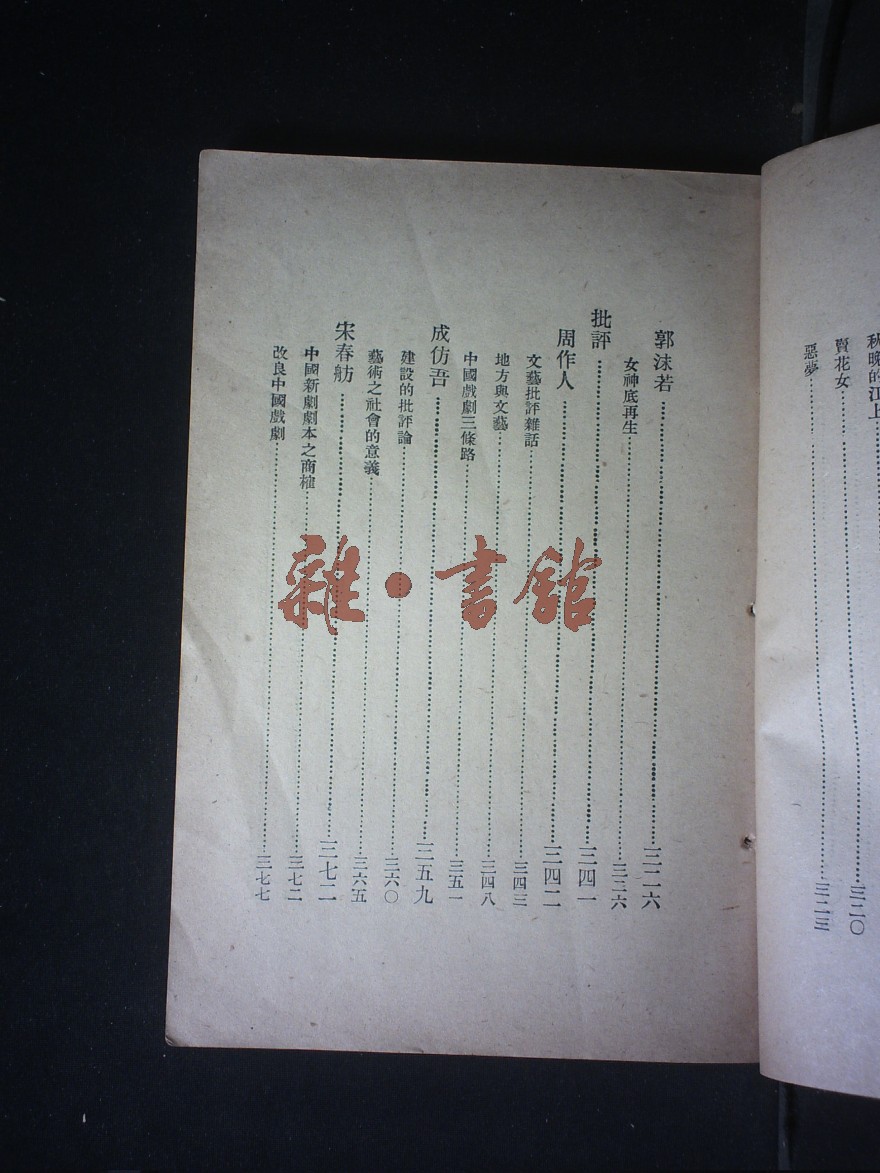 秋晚的江上
賣花女……三二〇
惡夢……三二三
郭沫若……三二六
女神底再生……三三六
批評……三四一
周作人……三四二
文藝批評雜話……三四三
地方與文藝……三四八
中國戲劇三條路……三五一
成仿吾……三五九
建設的批評論……三六〇
藝術之社會的意義……三六五
宋春舫……三七二
中國新劇劇本之商榷……三七二
改良中國戲劇……三七七
雜·書館